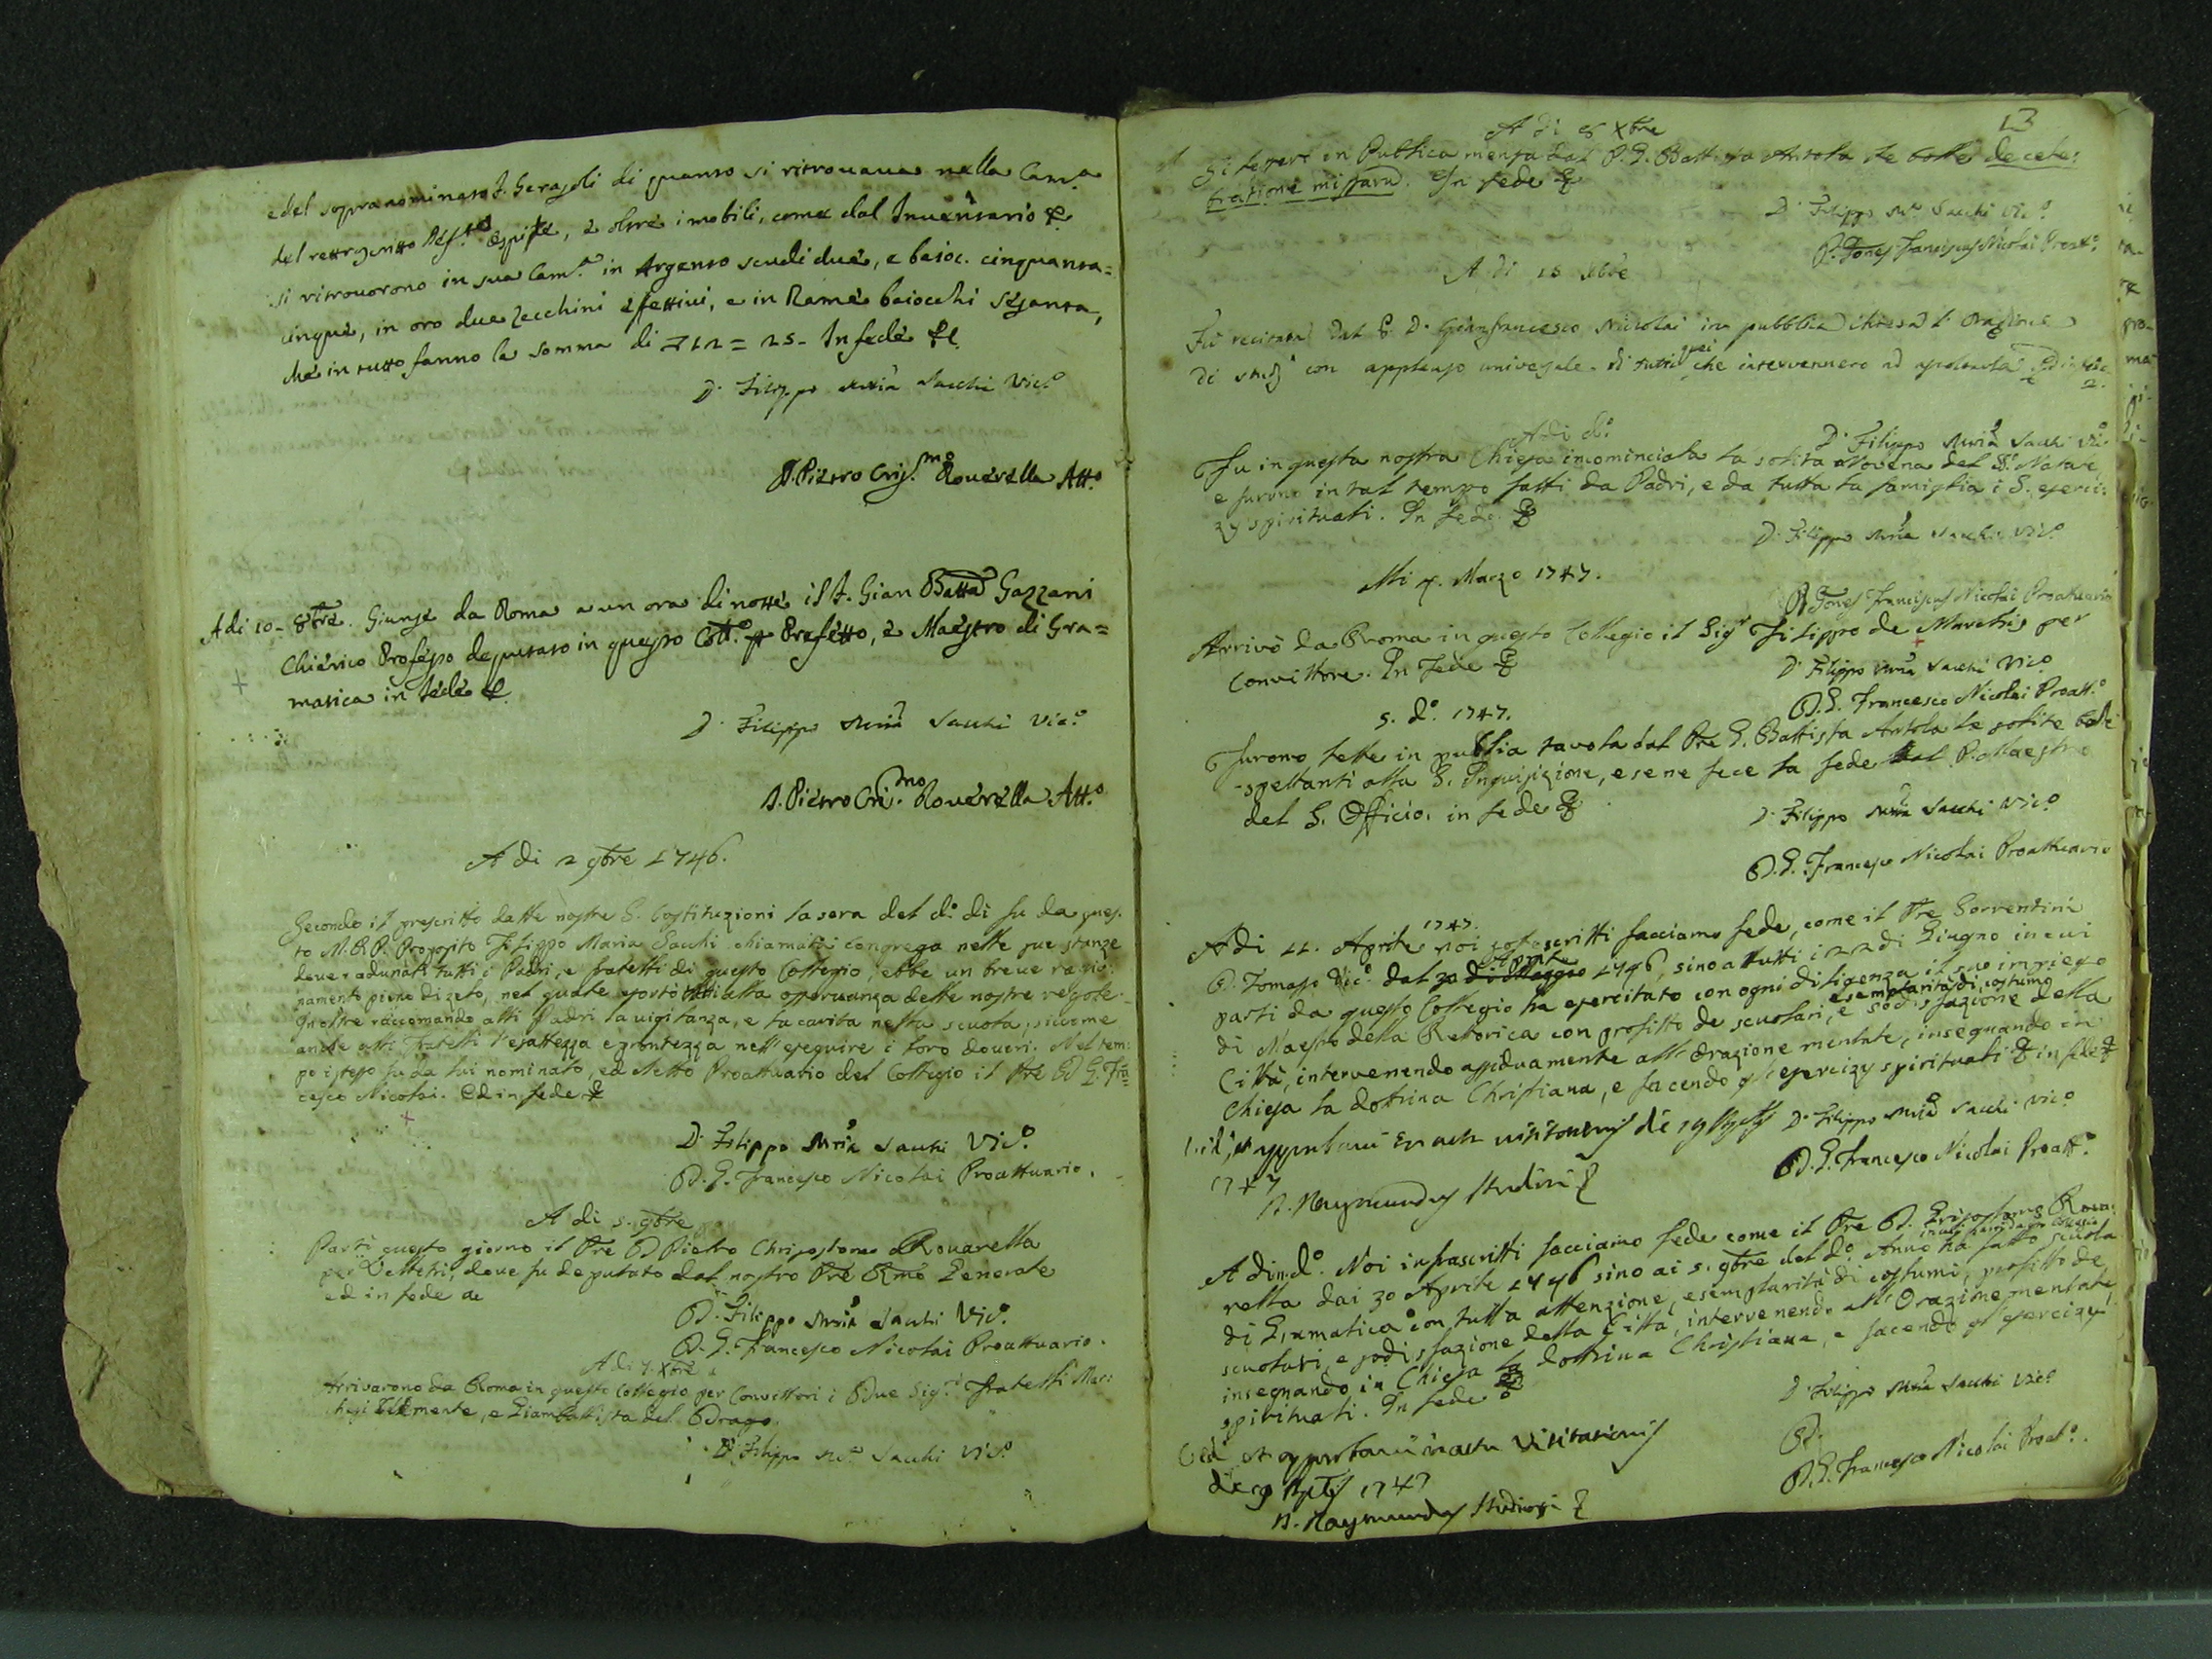 e del sopranominato P. Gerasoli di quanto si ritrovava nella Cam.ª
del rettroscritto, e oltre i mobili, come dal Inventario &
si ritrovorono in sua Cam.ª in Argento scudi due, e baioc. cinquanta=
cinque, in oro due Zecchini effettivi, e in Rame baiocchi sesanta,
che in tutto fanno la somma di = 25 - In fede &
D. Filippo Mria Sacchi Vic.º
D. Pietro Cris.mo Roverella Att.º
A di 10 - 8bre. Giunse da Roma a un ora di notte il P. Gian Batta Gazzani
Chierico Professo deputato in questo Coll.º Prefetto, e Maestro di Gra=
matica in fede &
D. Filippo Mria Sacchi Vic.º
D. Pietro Cri.mo Roverella Att.º
A di 2 9bre 1746.
Secondo il prescritto dalle nostre S. Costituzioni la sera del d.º di fu da ques-
to M. R. P. Proposito Filippo Maria Sacchi chiamata congrega nelle sue stanze
dove radunati tutti i Padri, e fratelli di questo Collegio, ebbe un breve ragio:
namento pieno di zelo, nel quale esortò tutti alla osservanza delle nostre regole.
Inoltre raccomandò alli Padri la vigilanza, e la carità nella scuola, siccome
anche alli Fratelli l'esattezza e prontezza nell'eseguire i loro doveri. Nel tem:
po istesso fu da lui nominato, ed eletto Proattuario del Collegio il Pre D. G. Fran=
cesco Nicolai. Ed in fede &
D. Filippo Mria Sacchi Vic.º
D. G. Francesco Nicolai Proattuario.
A di 5. 9bre
Parti questo giorno il Pre D Pietro Chrisostomo Rovarella
per Velletri, dove fu deputato dal nostro Pre Rmo Generale
ed in fede &
D. Filippo Mria Sacchi Vic.º
D. G. Francesco Nicolai Proattuario.
A di 7. Xbre
Arrivarono da Roma in questo Collegio per Convittori i due Sig.ri Fratelli Mar:
chesi Clemente, e Giambattista del Drago.
D. Filippo M.ª Sacchi Vic.º
13
A di 8 Xbre
Si lessero in Publica mensa dal P. G. Battista Antola le bolle de cele:
bratione missarū. In fede &
D. Filippo M.ª Sacchi Vic.º
D. Joñes Franciscus Nicolai Proatt.º
A di 15 Xbre
Fù recitata dal P. D. Gianfrancesco Nicolai in pubblica chiesa l'Orazione
di studj con applauso universale di tutti quei che intervennero ad ascoltarla Ed in fede
&.
D. Filippo Mria Sacchi Vic.º
A di d.º
Fu in questa nostra Chiesa incominciata la solita Novena del S. Natale,
e furono in tal tempo fatti da Padri, e da tutta la famiglia i S. eserci:
zy spirituali. In fede. &
D. Filippo Mria Sacchi Vic.º
D Joñes Franciscus Nicolai Proattuario
Alli 4. Marzo 1747.
Arrivò da Roma in questo Collegio il Sig.r Filippo de Marchis per
Convittore. In Fede &
D. Filippo Mria Sacchi Vic.º
D. G. Francesco Nicolai Proatt.º
5. d.º 1747.
Furono lette in publica tavola dal Pre G. Battista Antola le solite bolle
spettanti alla S. Inquisizione, e se ne fece la fede dal P. Maestro
del S. Officio. in fede &
D. Filippo Mria Sacchi Vic.º
D. G. Francesco Nicolai Proattuario
A di 11. Aprile 1747. noi sottoscritti facciamo fede, come il Pre Sorrentini
D. Tomaso Vic.º dal 30 di Maggio Aprile 1746, sino a tutti i 22 di Giugno in cui
parti da questo Collegio ha esercitato con ogni diligenza il suo impiego
di Maestro della Rettorica con profitto de scuolari, esemplarità di costumi, e sodisfazione della
Città, intervenendo assiduamente all'Orazione mentale, insegnando in
Chiesa la dottrina Christiana, e facendo gl'esercizy spirituali & in fede &
D. Filippo Mria Sacchi Vic.º
D. G. Francesco Nicolai Proatt.º
1747
D. Raymundus Studiosi
A di d.º Noi infrascritti facciamo fede come il Pre D. Grisostomo Rova:
rella dai 30 Aprile 1746 sino ai 5. 9bre del d.º Anno in cui parti da q.º Collegio ha fatto scuola
di Gramatica con tutta attenzione, esemplarità di costumi, profitto de
scuolari, e sodisfazione della Città, intervenendo all'Orazione mentale,
insegnando in Chiesa la dottrina Christiana, e facendo gl'esercizy
spirituali. In fede &
D. Filippo Mria Sacchi Vic.º
D.
D. G. Francesco Nicolai Proat.º.
Vidi et approbavi in actu Visitationis
1747
D. Raymundus Studiosi